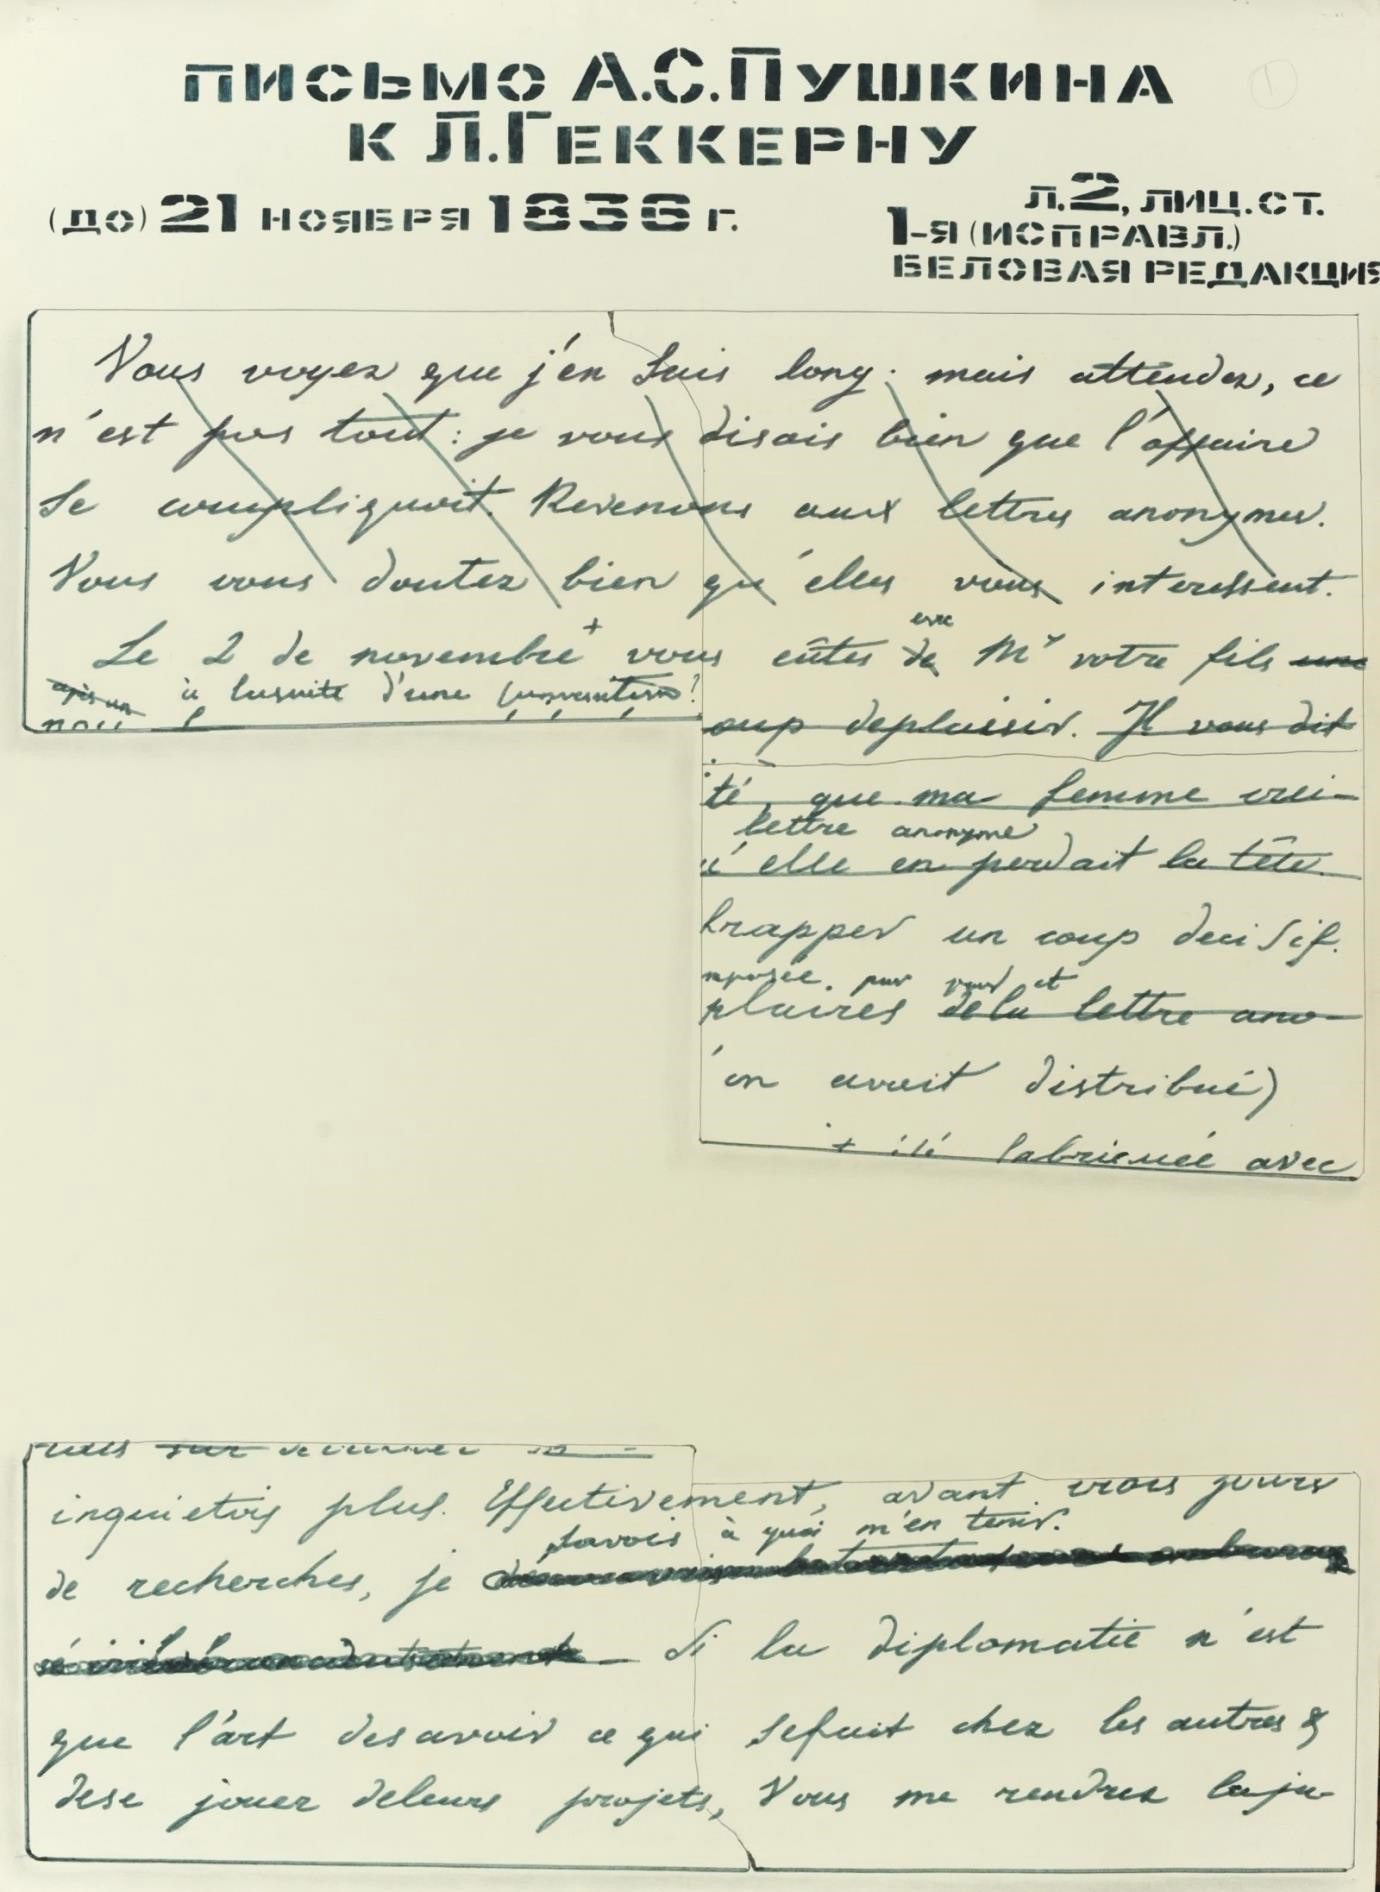 ПИСЬМО А.С.ПУШКИНА
К Л.ГЕККЕРНУ
(ДО) 21 НОЯБРЯ 1836 Г.
Л.2, ЛИЦ.СТ.
1-Я (ИСПРАВЛ.)
БЕЛОВАЯ РЕДАКЦИЯ
Vous voyez que j'en sais long. mais attendez, ce
n'est pas tout: je vous disais bien que l'affaire
se compliquoit. Revenons aux lettres anonymes.
Vous vous doutez bien qu'elles vous interessent.
eue
Le 2 de novembre + vous eûtes de Mr votre fils une
à la suite d'une conversation?
oup deplaisir. Il vous dit
té, que ma femme crai-
lettre anonyme
u'elle en perdait la tête.
frapper un coup decisif.
mposée par vous et
plaires de la lettre ano-
'on avoit distribué)
t été fabriquée avec
inquietois plus. Effectivement, avant trois jours
savois à quoi m'en tenir.
de recherches, je
Si la diplomatie n'est
que l'art de savoir ce qui se fait chez les autres &
de se jouer de leurs projets, Vous me rendrez la ju-